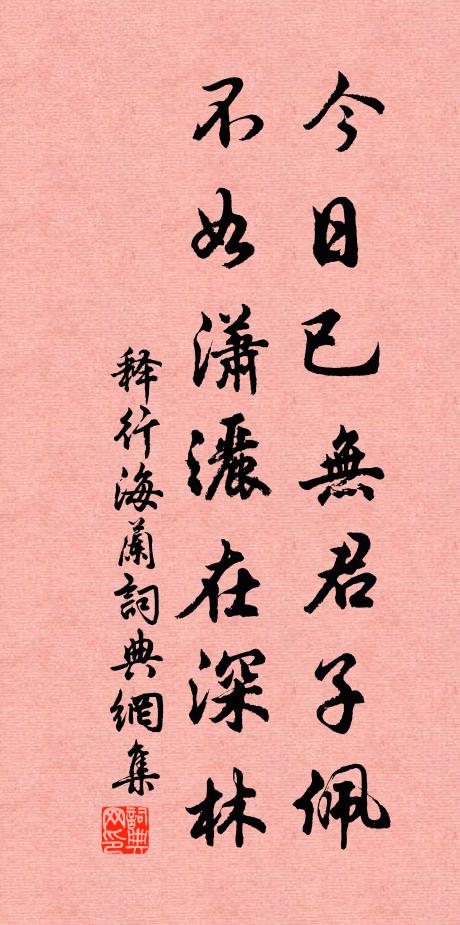 今日已無君子佩
不如瀟灑在深林
釋行海蘭詞典網集
詞典网印